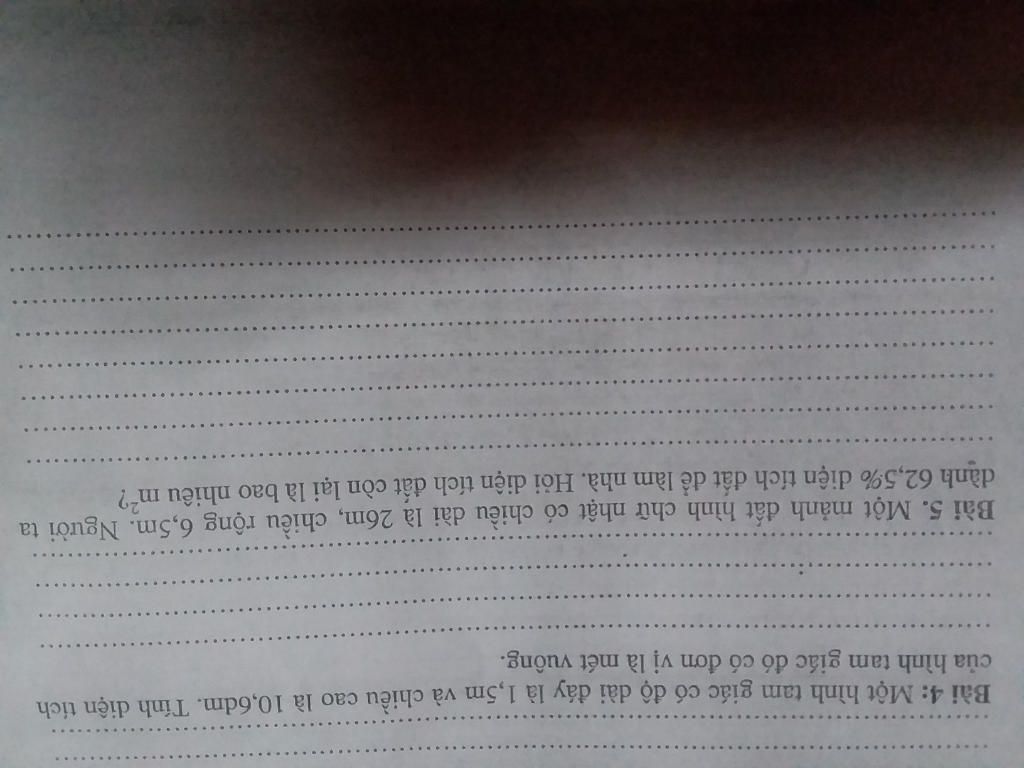 Bài 4: Một hình tam giác có độ dài đáy là 1,5m và chiều cao là 10,6dm. Tính diện tích
của hình tam giác đó có đơn vị là mét vuông.
Bài 5. Một mảnh đất hình chữ nhật có chiều dài là 26m, chiều rộng 6,5m. Người ta
dành 62,5% diện tích đất để làm nhà. Hỏi diện tích đất còn lại là bao nhiêu m²?